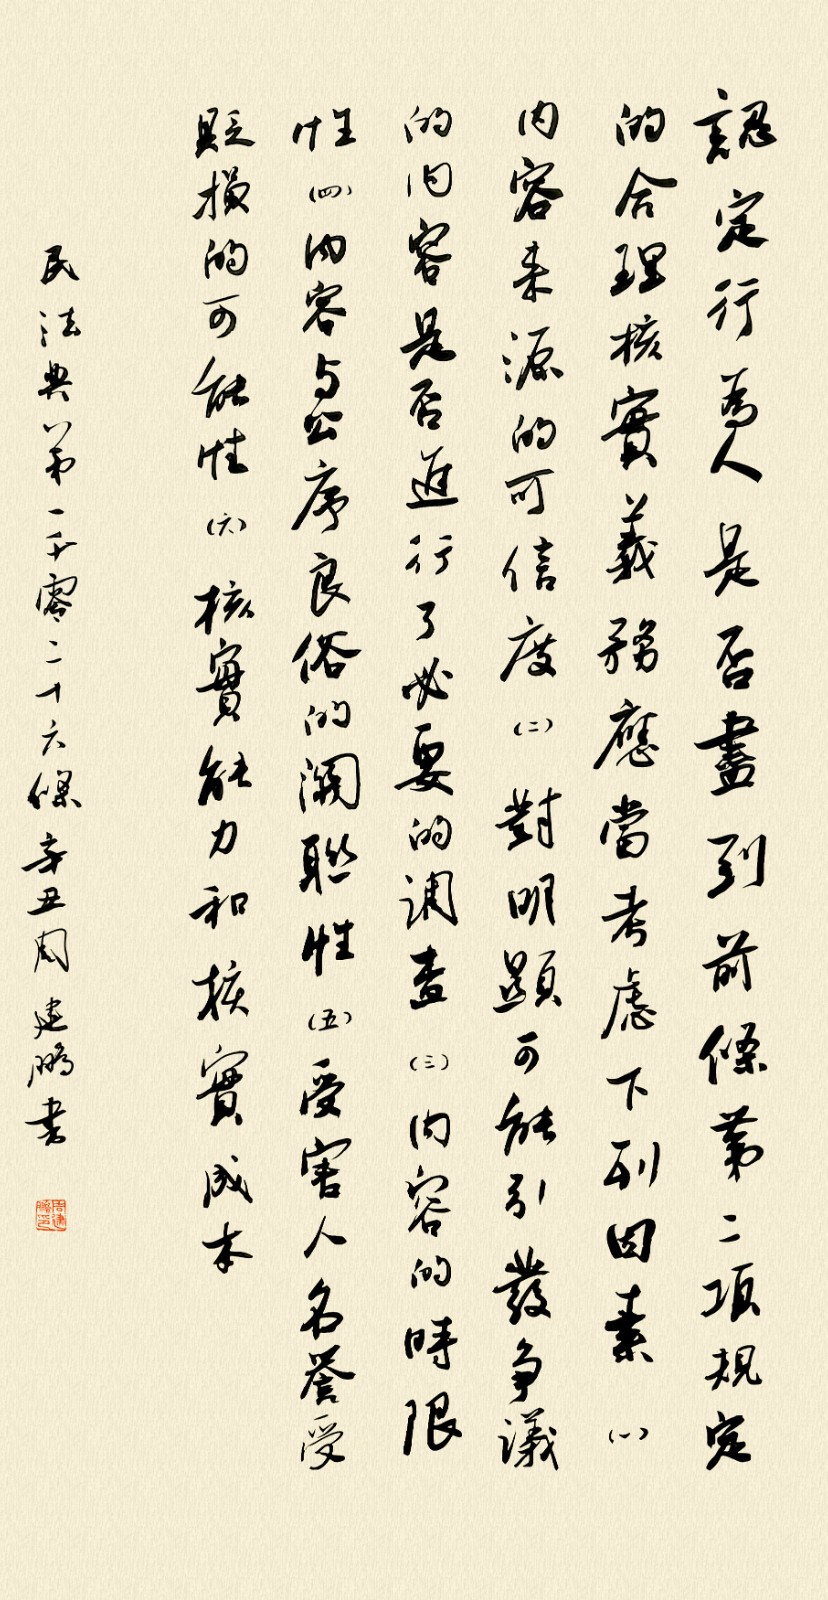 認定行為人是否盡到前條第二項規定
的合理核實義務應當考慮下列因素(一)
內容来源的可信度(二)對明顯可能引發爭議
的内容是否進行了必要的调查(三)内容的時限
性(四)内容与公序良俗的関聯性(五)受害人名譽受
貶損的可能性(六)核實能力和核實成本
民法典第一千零二十六條辛丑周建鵬书
周建鵬印